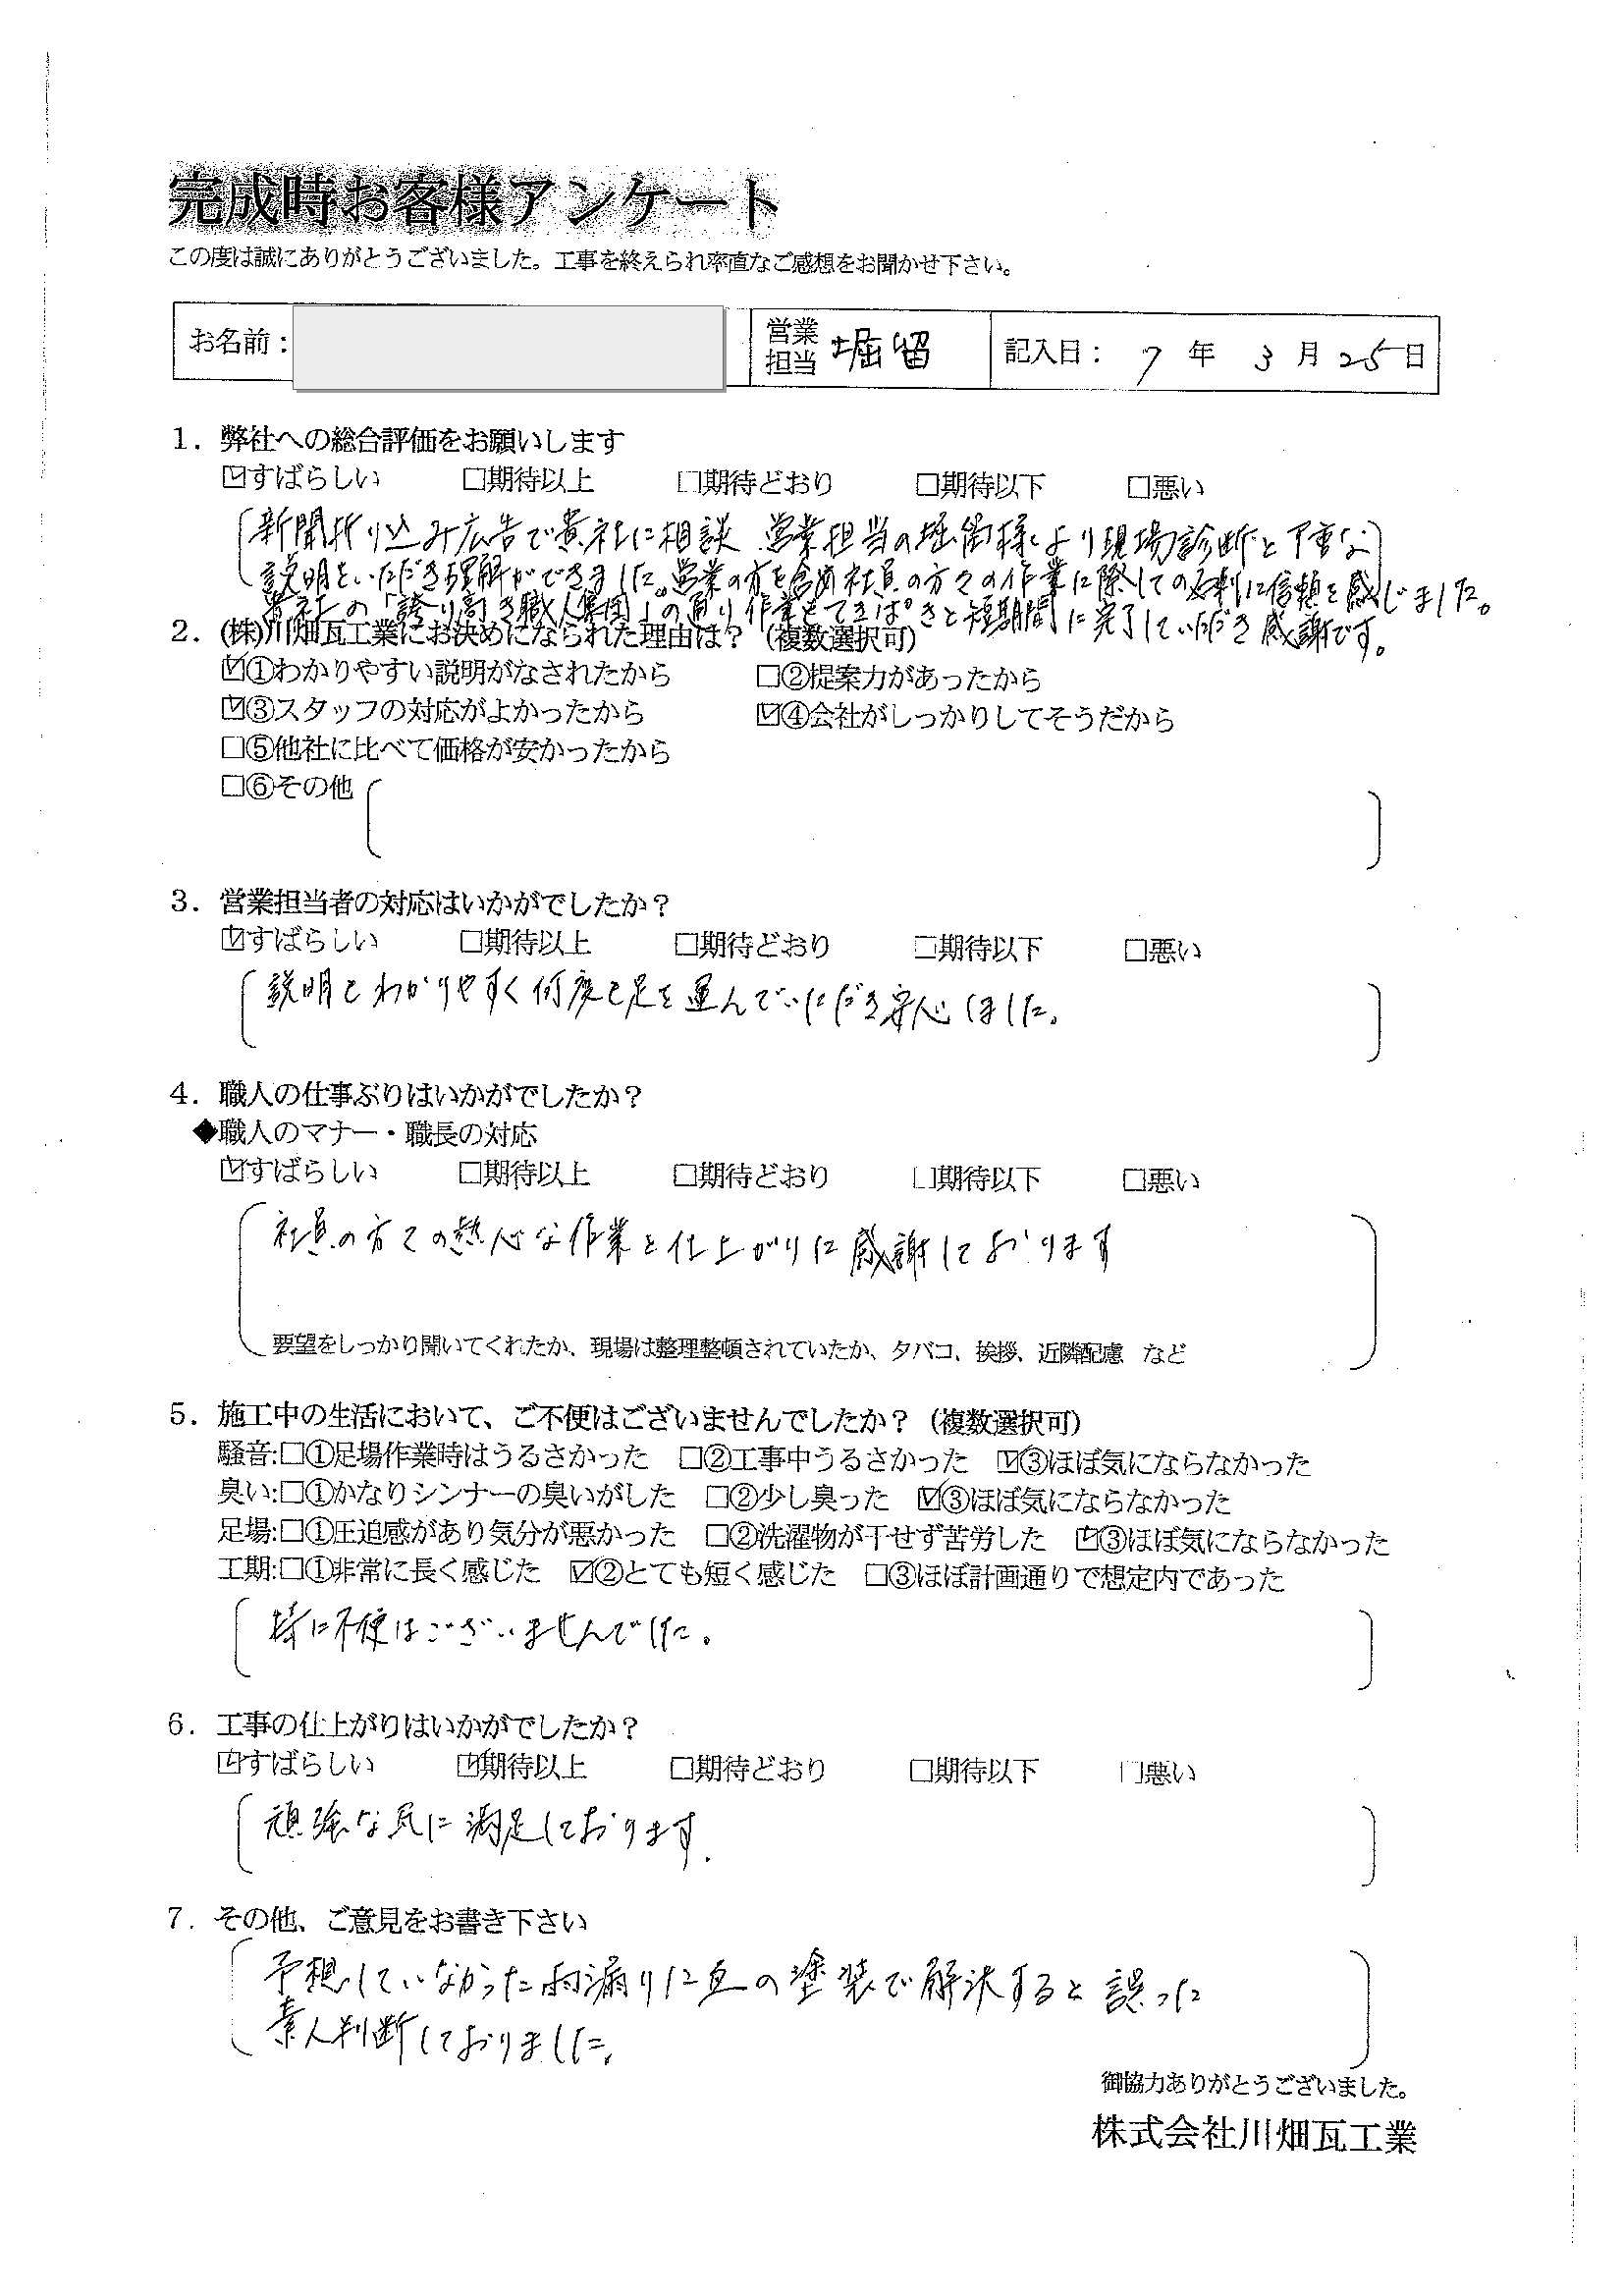 完成時お客様アンケート
この度は誠にありがとうございました。工事を終えられ率直なご感想をお聞かせ下さい。
お名前： 営業担当 堀留 記入日： 7 年 3 月 25 日
1．弊社への総合評価をお願いします
☑すばらしい □期待以上 □期待どおり □期待以下 □悪い
新聞折り込み広告で貴社に相談 営業担当の堀留様より現場診断と丁重な
説明をいただき理解ができました。営業の方を含め社員の方々の作業に際しての挨拶に信頼を感じました。
貴社の「誇り高き職人集団」の通り作業もてきぱきと短期間に完了していただき感謝です。
2．(株)川畑瓦工業にお決めになられた理由は？（複数選択可）
☑①わかりやすい説明がなされたから □②提案力があったから
☑③スタッフの対応がよかったから ☑④会社がしっかりしてそうだから
□⑤他社に比べて価格が安かったから
□⑥その他
3．営業担当者の対応はいかがでしたか？
☑すばらしい □期待以上 □期待どおり □期待以下 □悪い
説明もわかりやすく何度も足を運んでいただき安心しました。
4．職人の仕事ぶりはいかがでしたか？
◆職人のマナー・職長の対応
☑すばらしい □期待以上 □期待どおり □期待以下 □悪い
社員の方々の熱心な作業と仕上がりに感謝しております
要望をしっかり聞いてくれたか、現場は整理整頓されていたか、タバコ、挨拶、近隣配慮 など
5．施工中の生活において、ご不便はございませんでしたか？（複数選択可）
騒音:□①足場作業時はうるさかった □②工事中うるさかった ☑③ほぼ気にならなかった
臭い:□①かなりシンナーの臭いがした □②少し臭った ☑③ほぼ気にならなかった
足場:□①圧迫感があり気分が悪かった □②洗濯物が干せず苦労した ☑③ほぼ気にならなかった
工期:□①非常に長く感じた ☑②とても短く感じた □③ほぼ計画通りで想定内であった
特に不便はございませんでした。
6．工事の仕上がりはいかがでしたか？
☑すばらしい ☑期待以上 □期待どおり □期待以下 □悪い
頑強な瓦に満足しております.
7．その他、ご意見をお書き下さい
予想していなかった雨漏りに瓦の塗装で解決すると誤った
素人判断しておりました。
御協力ありがとうございました。
株式会社川畑瓦工業